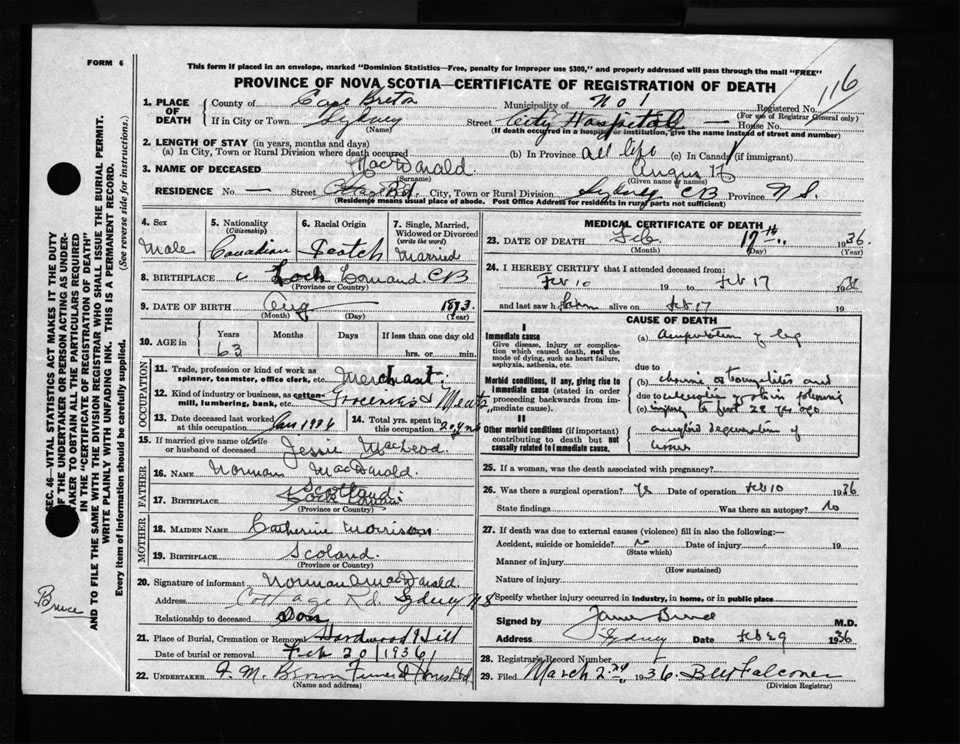 FORM 6
This form if placed in an envelope, marked "Dominion Statistics—Free, penalty for improper use $300," and properly addressed will pass through the mail "FREE"
PROVINCE OF NOVA SCOTIA—CERTIFICATE OF REGISTRATION OF DEATH
116
1. PLACE OF DEATH
County of Cape Breton Municipality of No 1 Registered No.
(For use of Registrar General only)
If in City or Town Sydney Street City Hospital — House No.
(Name) (If death occurred in a hospital or institution, give the name instead of street and number)
2. LENGTH OF STAY (in years, months and days)
(a) In City, Town or Rural Division where death occurred (b) In Province all life (c) In Canada (if immigrant)
3. NAME OF DECEASED MacDonald Angus H
(Surname) (Given name or names)
RESIDENCE No — Street Cottage Rd. City, Town or Rural Division Sydney CB Province N S.
(Residence means usual place of abode. Post Office Address for residents in rural parts not sufficient)
4. Sex Male
5. Nationality (Citizenship) Canadian
6. Racial Origin Scotch
7. Single, Married, Widowed or Divorced (write the word) Married
8. BIRTHPLACE Loch Lomand. CB
(Province or Country)
9. DATE OF BIRTH Aug — 1873.
(Month) (Day) (Year)
10. AGE in Years 63 Months Days If less than one day old
hrs. or min.
OCCUPATION
11. Trade, profession or kind of work as spinner, teamster, office clerk, etc. Merchant
12. Kind of industry or business, as cotton-mill, lumbering, bank, etc. Groceries & Meats
13. Date deceased last worked at this occupation Jan 1936
14. Total yrs. spent in this occupation 20 yrs
15. If married give name of wife or husband of deceased Jessie MacLeod.
FATHER
16. NAME Norman MacDonald.
Scotland
17. BIRTHPLACE
(Province or Country)
MOTHER
18. MAIDEN NAME Catherine Morrison
19. BIRTHPLACE Scoland.
(Province or Country)
20. Signature of informant Norman A MacDonald
Address Cottage Rd. Sydney N S
Relationship to deceased Son
21. Place of Burial, Cremation or Removal Hardwood Hill
Date of burial or removal Feb 20/1936
22. UNDERTAKER
(Name and address)
MEDICAL CERTIFICATE OF DEATH
23. DATE OF DEATH Feb 17th, 1936.
(Month) (Day) (Year)
24. I HEREBY CERTIFY that I attended deceased from:
Feb 10 19 to Feb 17 1936
and last saw h him alive on Feb 17 19
CAUSE OF DEATH
I
Immediate cause
Give disease, injury or complication which caused death, not the mode of dying, such as heart failure, asphyxia, asthenia, etc.
(a) amputation of leg
due to
Morbid conditions, if any, giving rise to immediate cause (stated in order proceeding backwards from immediate cause).
(b) chronic osteomyelitis and
due to ulceration of foot in following
(c) injury to foot 28 yrs ago
II
Other morbid conditions (if important) contributing to death but not causally related to immediate cause.
amyloid degeneration of
25. If a woman, was the death associated with pregnancy?
26. Was there a surgical operation? Yes Date of operation Feb 10 1936
State findings Was there an autopsy? No
27. If death was due to external causes (violence) fill in also the following:—
Accident, suicide or homicide? No Date of injury 19
(State which)
Manner of injury
(How sustained)
Nature of injury
Specify whether injury occurred in industry, in home, or in public place
Signed by James Bruce M.D.
Address Sydney Date Feb 29 1936
28. Registrar's Record Number
29. Filed March 2nd, 1936. Falconer
(Division Registrar)
SEC. 46—VITAL STATISTICS ACT MAKES IT THE DUTY OF THE UNDERTAKER OR PERSON ACTING AS UNDERTAKER TO OBTAIN ALL THE PARTICULARS REQUIRED IN THE "CERTIFICATE OF REGISTRATION OF DEATH" AND TO FILE THE SAME WITH THE DIVISION REGISTRAR WHO SHALL ISSUE THE BURIAL PERMIT.
WRITE PLAINLY WITH UNFADING INK. THIS IS A PERMANENT RECORD.
Every item of information should be carefully supplied. (See reverse side for instructions.)
Bruce